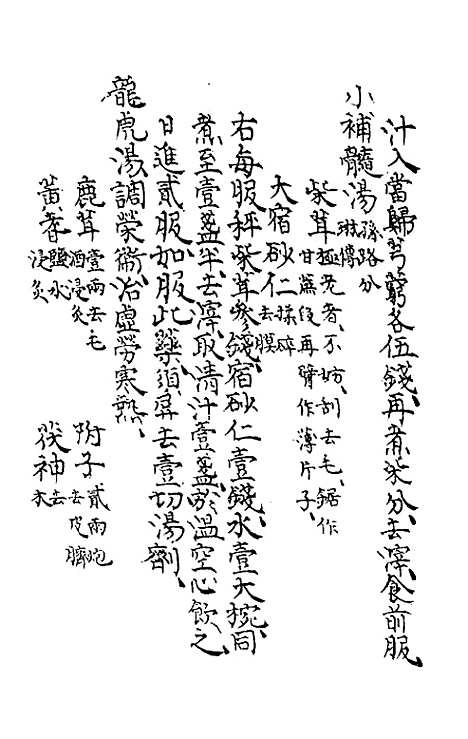 汁入當歸芎藭各伍錢、再煮柒分、去滓、食前服
小補髓湯孫路分
琳傳
柴茸極老者、不妨刮去毛、鋸作
甘蔗段再臂作薄片子、
大宿砂仁揉碎
去膜
右每服秤柴茸叄錢宿砂仁壹錢水壹大椀同
煮至壹盞半去滓、取清汁壹盞於溫空心飲之
日進貳服如服此藥須屏去壹切湯劑、
龍虎湯調榮衛治虛勞寒熱、
鹿茸壹兩去毛
酒浸炙
附子貳兩炮
去皮臍
黃耆鹽水
浸炙
茯神去
木